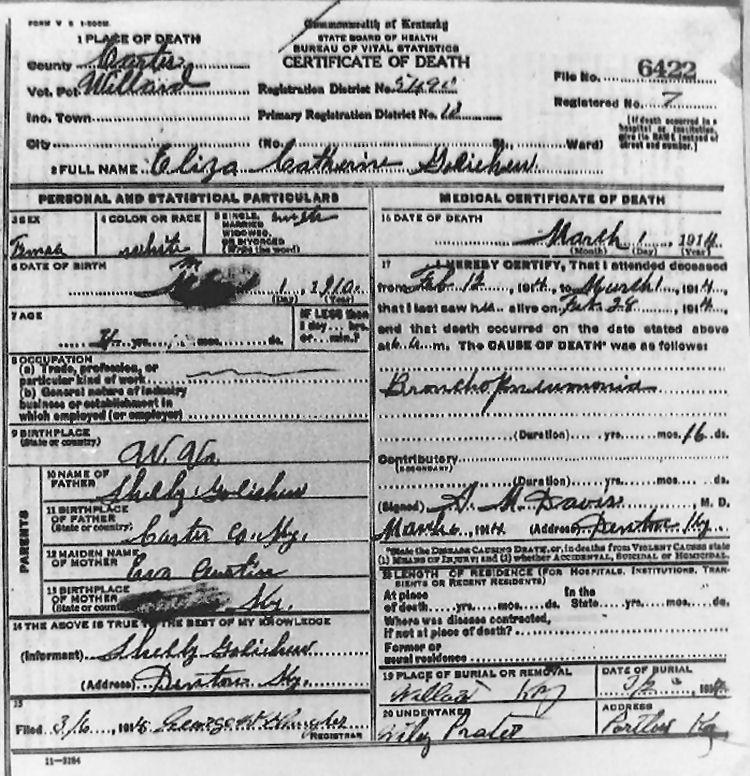 FORM V S 1-500M.
Commonwealth of Kentucky
STATE BOARD OF HEALTH
BUREAU OF VITAL STATISTICS
CERTIFICATE OF DEATH
1 PLACE OF DEATH
County Carter
Vot. Pct Willard
Ino. Town
City (No. St., Ward)
Registration District No.
Primary Registration District No.
File No. 6422
Registered No. 7
[If death occurred in a
hospital or institution,
give its NAME instead of
street and number.]
2 FULL NAME Eliza Catherine
PERSONAL AND STATISTICAL PARTICULARS
3 SEX
Female
4 COLOR OR RACE
white
5 SINGLE,
MARRIED
WIDOWED,
OR DIVORCED
(Write the word)
single
6 DATE OF BIRTH
1, 1910
(Day) (Year)
7 AGE
yrs. mos. ds.
IF LESS than
1 day... hrs.
or... min.?
8 OCCUPATION
(a) Trade, profession, or
particular kind of work
(b) General nature of industry
business or establishment in
which employed (or employer)
9 BIRTHPLACE
(State or country)
W. Va.
PARENTS
10 NAME OF
FATHER
Shelly
11 BIRTHPLACE
OF FATHER
(State or country)
Carter Co. Ky.
12 MAIDEN NAME
OF MOTHER
Eva Austin
13 BIRTHPLACE
OF MOTHER
(State or country)
Ky.
14 THE ABOVE IS TRUE TO THE BEST OF MY KNOWLEDGE
(Informant) Shelly
(Address) Denton Ky.
15
Filed 3/6, 1914 George
REGISTRAR
11-3184
MEDICAL CERTIFICATE OF DEATH
16 DATE OF DEATH
March 1, 1914
(Month) (Day) (Year)
17 I HEREBY CERTIFY, That I attended deceased
from Feb 12, 1914, to March 1, 1914,
that I last saw her alive on Feb. 28, 1914,
and that death occurred on the date stated above
at 6 a.m. The CAUSE OF DEATH* was as follows:
Broncho pneumonia
(Duration) yrs. mos. 16 ds.
Contributory
(SECONDARY)
(Duration) yrs. mos. ds.
(Signed) M. Davis, M. D.
March 6, 1914 (Address) Denton Ky
*State the DISEASE CAUSING DEATH, or, in deaths from VIOLENT CAUSES state
(1) MEANS OF INJURY; and (2) whether ACCIDENTAL, SUICIDAL or HOMICIDAL.
18 LENGTH OF RESIDENCE (FOR HOSPITALS, INSTITUTIONS, TRAN-
SIENTS OR RECENT RESIDENTS)
At place
of death yrs. mos. ds.
In the
State yrs. mos. ds.
Where was disease contracted,
if not at place of death?
Former or
usual residence
19 PLACE OF BURIAL OR REMOVAL
Willard Ky
DATE OF BURIAL
1914
20 UNDERTAKER
Wiley Prater
ADDRESS
Ky